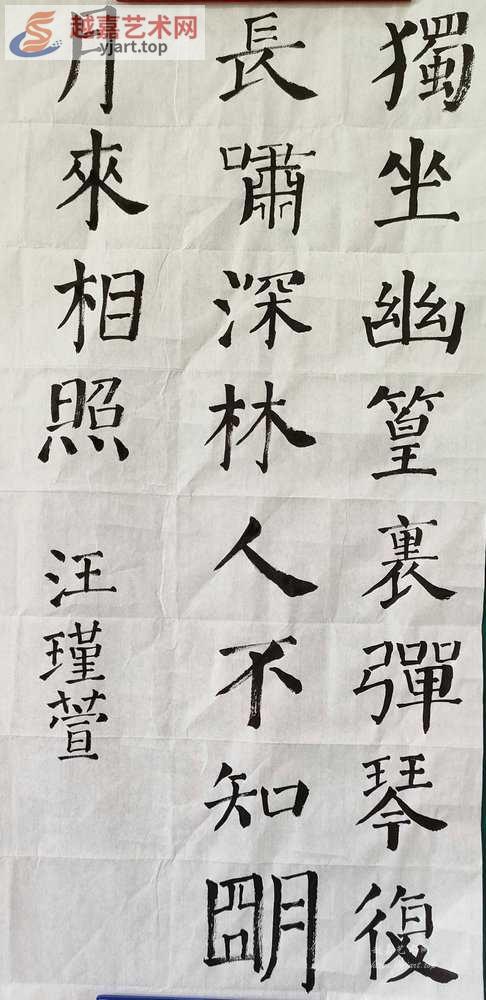 越嘉艺术网
yjart.top
獨坐幽篁裏彈琴復
長嘯深林人不知朙
月來相照
汪瑾萱